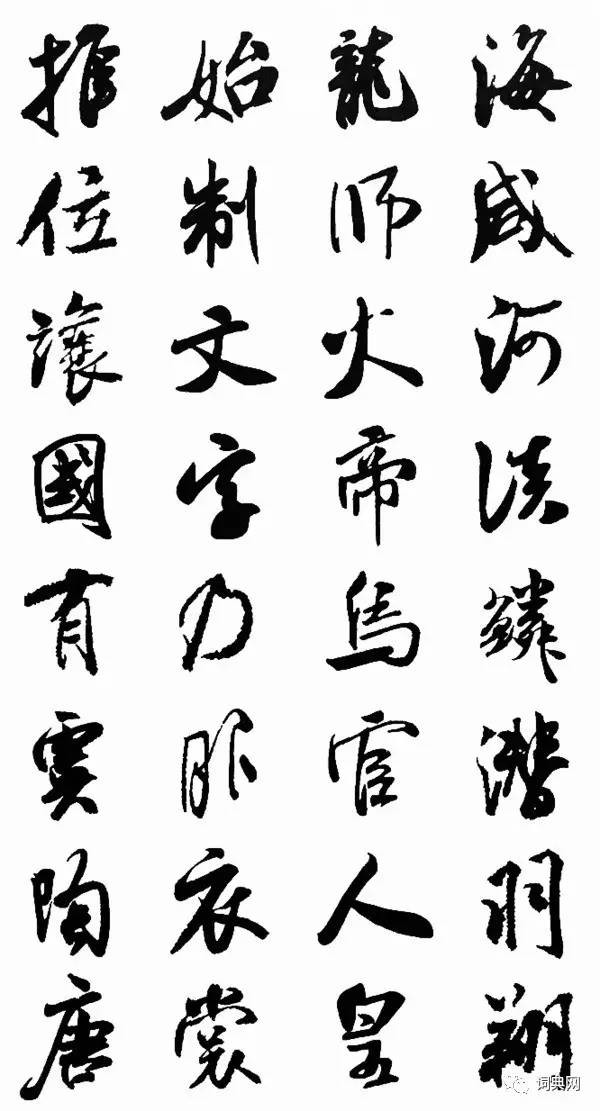 海咸河淡鱗潛羽翔
龍師火帝鳥官人皇
始制文字乃服衣裳
推位讓國有虞陶唐
词典网